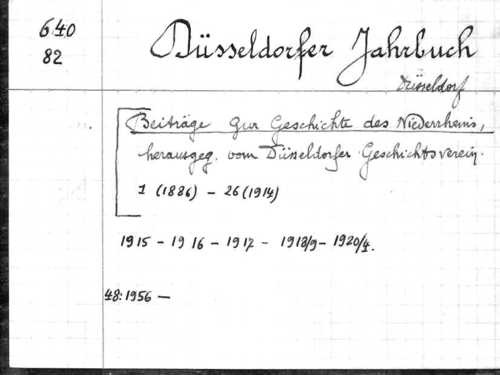 640
82
Düsseldorfer Jahrbuch
Düsseldorf
Beiträge zur Geschichte des Niederrheins,
herausgeg. vom Düsseldorfer Geschichtsverein.
1 (1886) - 26 (1914)
1915 - 1916 - 1917 - 1918/9 - 1920/4.
48: 1956 -